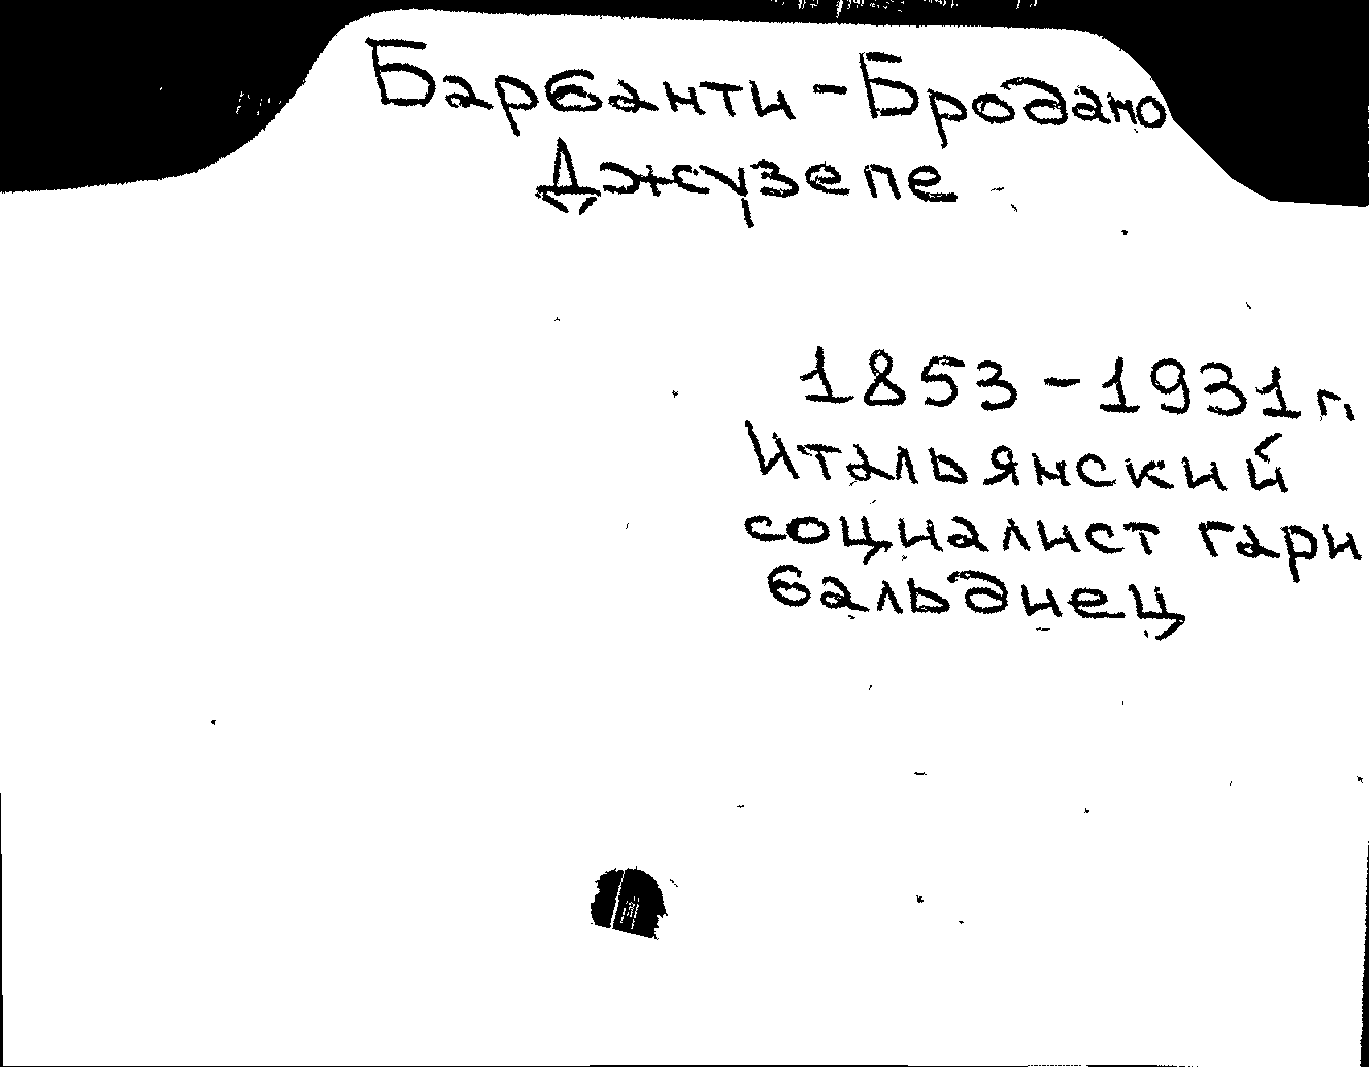 Барбанти-Бродано
Джузепе
1853-1931 г.
Итальянский
социалист гари
бальдиец